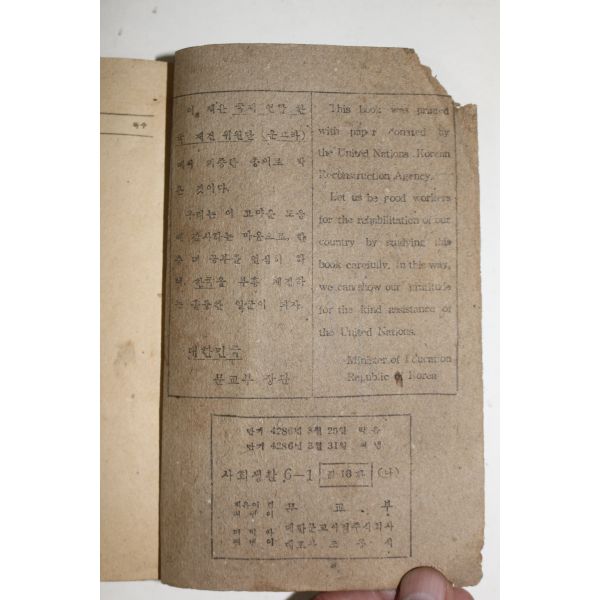 이 책은 국제 연합 한
국 재건 위원단 (운끄라)
에서 기증한 종이로 박
은 것이다.
우리는 이 고마운 도움
에 감사하는 마음으로, 한
층 더 공부를 열심히 하
여, 한국을 부흥 재건하
는 훌륭한 일군이 되자.
대한민국
문교부 장관
This book was printed
with paper donated by
the United Nations Korean
Reconstruction Agency.
Let us be good workers
for the rehabilitation of our
country by studying this
book carefully. In this way,
we can show our gratitude
for the kind assistance of
the United Nations.
Minister of Education
Republic of Korea
단기 4286년 3월 25일 박음
단기 4286년 3월 31일 펴냄
사회생활 6-1 (나)
문 교 부
대한문교서적주식회사
대표